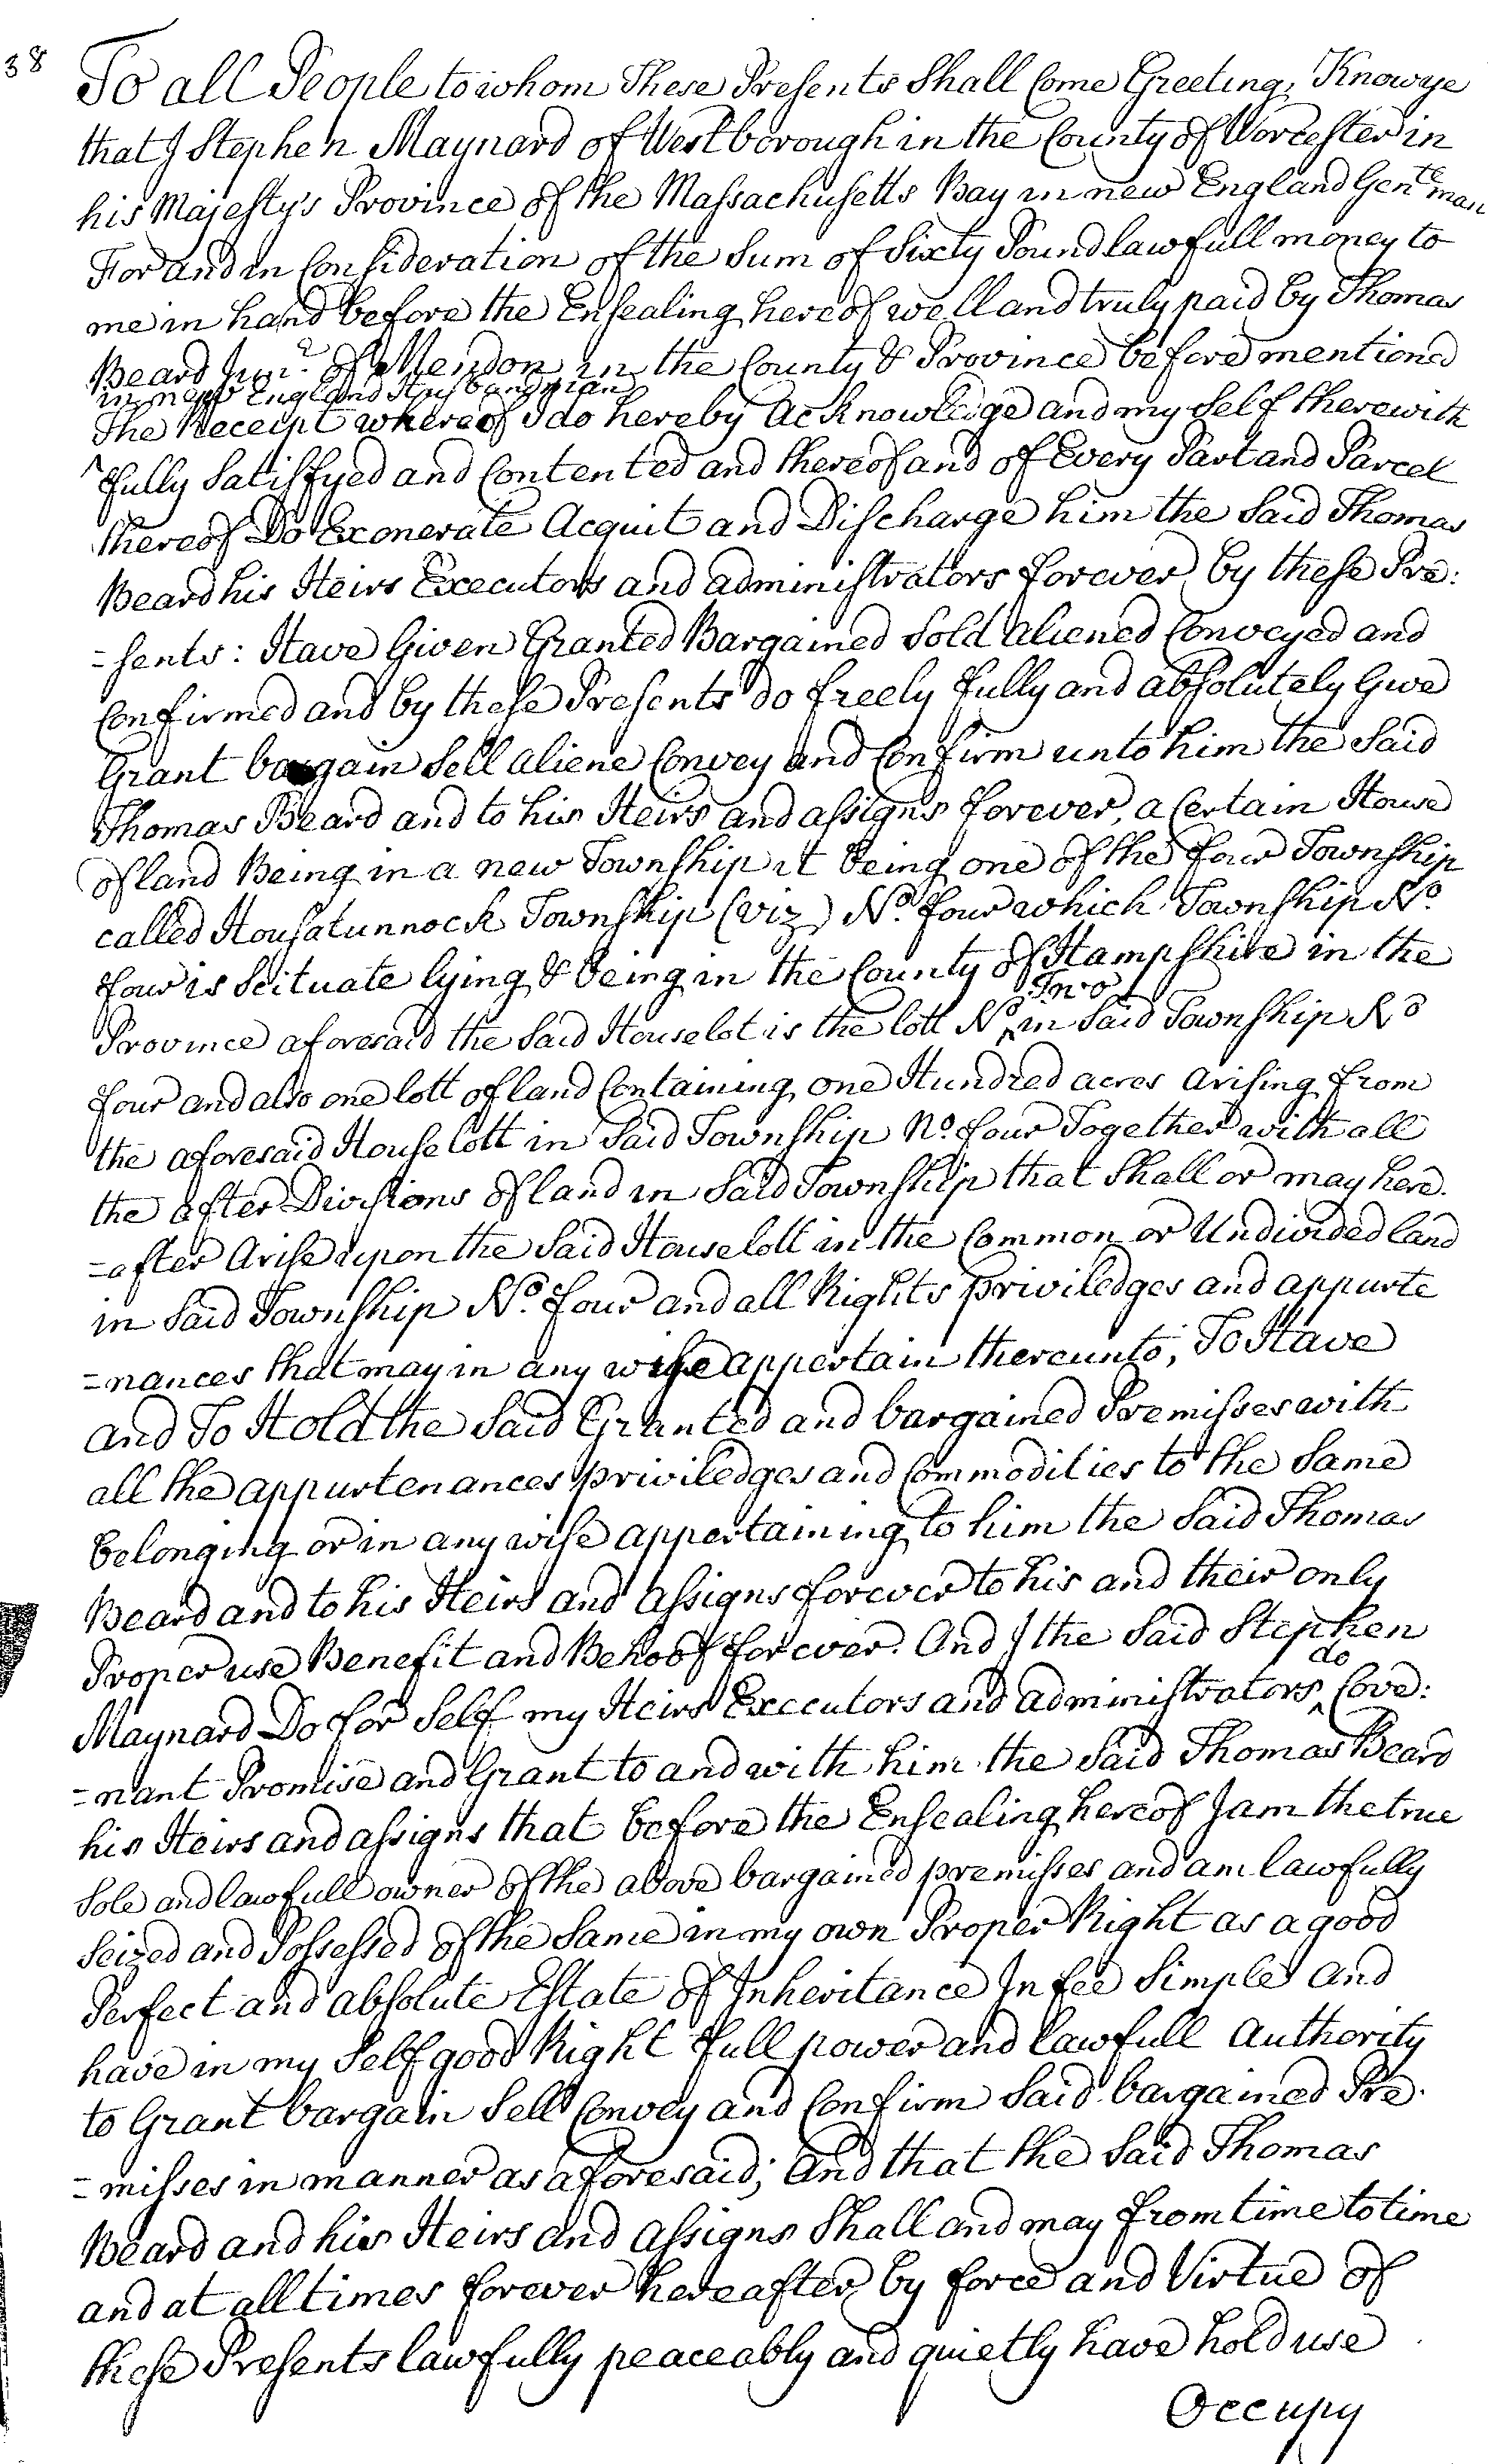 38
To all People to whom These Presents Shall Come Greeting, Know ye
that I Stephen Maynard of Westborough in the County of Worcester in
his Majesty's Province of the Massachusetts Bay in new England Gentleman
For and in Consideration of the Sum of Sixty Pound lawfull money to
me in hand before the Ensealing hereof well and truly paid by Thomas
Beard Junr. of Mendon in the County & Province before mentioned
in new England Husbandman
The Receipt whereof I do hereby Acknowledge and my Self therewith
fully Satisfyed and Contented and thereof and of Every Part and Parcel
thereof Do Exonerate Acquit and Discharge him the Said Thomas
Beard his Heirs Executors and administrators forever by these Pre:
=sents: Have Given Granted Bargained Sold aliened Conveyed and
Confirmed and by these Presents do freely fully and absolutely Give
Grant bargain Sell aliene Convey and Confirm unto him the Said
Thomas Beard and to his Heirs and assigns forever, a Certain House
of land Being in a new Township it being one of the four Township
called Housatunnock Township (viz) No. four which Township No.
four is Scituate lying & being in the County of Hampshire in the
Two
Province aforesaid the Said House lot is the lott No ^ in Said Township No
four and also one lott of land Containing one Hundred acres arising from
the aforesaid House lott in Said Township No. four Together with all
the after Divisions of land in Said Township that Shall or may here.
=after Arise upon the Said House lott in the Common or Undivided land
in Said Township No. four and all Rights priviledges and appurte
=nances that may in any wise appertain thereunto; To Have
and To Hold the Said Granted and bargained Premisses with
all the appurtenances priviledges and Commodities to the Same
belonging or in any wise appertaining to him the Said Thomas
Beard and to his Heirs and assigns forever to his and their only
Proper use Benefit and Behoof forever. And I the Said Stephen
do
Maynard Do for Self my Heirs Executors and administrators ^ Cove:
=nant Promise and Grant to and with him the Said Thomas Beard
his Heirs and assigns that before the Ensealing hereof I am the true
Sole and lawfull owner of the above bargained premisses and am lawfully
Seized and Possessed of the Same in my own Proper Right as a good
Perfect and absolute Estate of Inheritance In fee Simple and
have in my Self good Right full power and lawfull Authority
to Grant bargain Sell Convey and Confirm Said bargained Pre.
=misses in manner as aforesaid; And that the Said Thomas
Beard and his Heirs and assigns Shall and may from time to time
and at all times forever hereafter by force and Virtue of
these Presents lawfully peaceably and quietly have hold use
Occupy